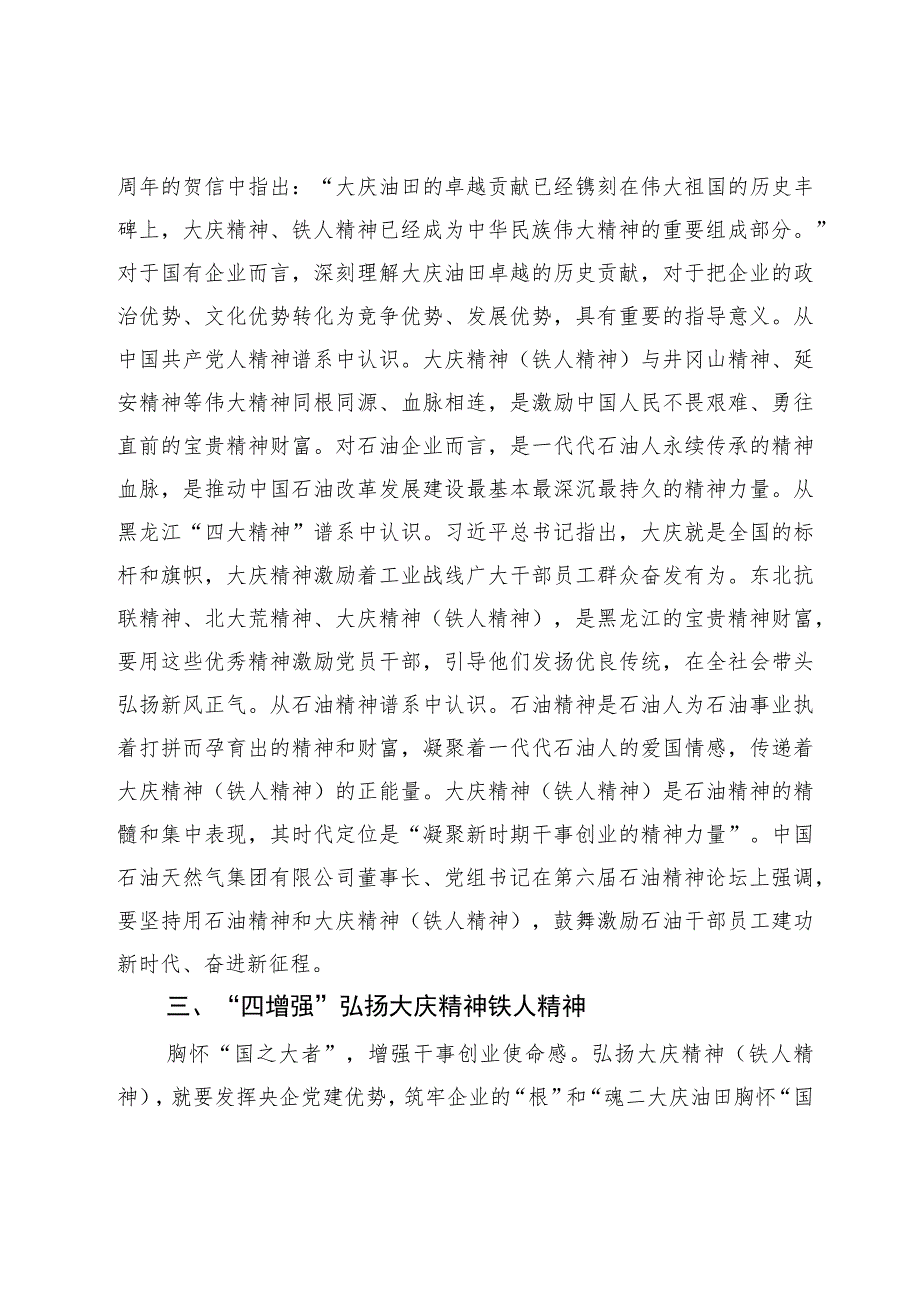 周年的贺信中指出：“大庆油田的卓越贡献已经镌刻在伟大祖国的历史丰
碑上，大庆精神、铁人精神已经成为中华民族伟大精神的重要组成部分。”
对于国有企业而言，深刻理解大庆油田卓越的历史贡献，对于把企业的政
治优势、文化优势转化为竞争优势、发展优势，具有重要的指导意义。从
中国共产党人精神谱系中认识。大庆精神（铁人精神）与井冈山精神、延
安精神等伟大精神同根同源、血脉相连，是激励中国人民不畏艰难、勇往
直前的宝贵精神财富。对石油企业而言，是一代代石油人永续传承的精神
血脉，是推动中国石油改革发展建设最基本最深沉最持久的精神力量。从
黑龙江“四大精神”谱系中认识。习近平总书记指出，大庆就是全国的标
杆和旗帜，大庆精神激励着工业战线广大干部员工群众奋发有为。东北抗
联精神、北大荒精神、大庆精神（铁人精神），是黑龙江的宝贵精神财富，
要用这些优秀精神激励党员干部，引导他们发扬优良传统，在全社会带头
弘扬新风正气。从石油精神谱系中认识。石油精神是石油人为石油事业执
着打拼而孕育出的精神和财富，凝聚着一代代石油人的爱国情感，传递着
大庆精神（铁人精神）的正能量。大庆精神（铁人精神）是石油精神的精
髓和集中表现，其时代定位是“凝聚新时期干事创业的精神力量”。中国
石油天然气集团有限公司董事长、党组书记在第六届石油精神论坛上强调，
要坚持用石油精神和大庆精神（铁人精神），鼓舞激励石油干部员工建功
新时代、奋进新征程。
三、“四增强”弘扬大庆精神铁人精神
胸怀“国之大者”，增强干事创业使命感。弘扬大庆精神（铁人精
神），就要发挥央企党建优势，筑牢企业的“根”和“魂二大庆油田胸怀“国